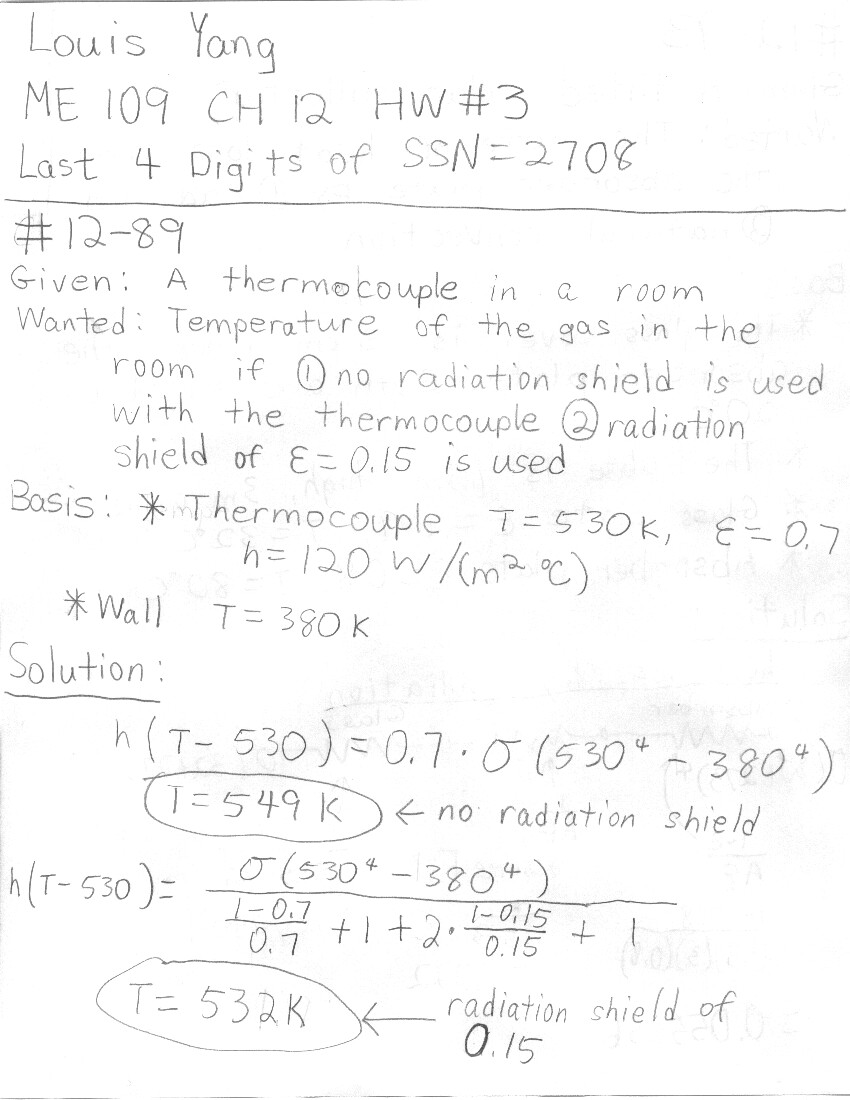 Louis Yang
ME 109 CH 12 HW #3
Last 4 Digits of SSN = 2708
#12-89
Given: A thermocouple in a room
Wanted: Temperature of the gas in the
room if ① no radiation shield is used
with the thermocouple ② radiation
shield of ε = 0.15 is used
Basis: * Thermocouple T = 530 K, ε = 0.7
h = 120 W/(m² °C)
* Wall T = 380 K
Solution:
h(T - 530) = 0.7 · σ (530⁴ - 380⁴)
T = 549 K ← no radiation shield
h(T - 530) = σ(530⁴ - 380⁴)
1-0.7/0.7 + 1 + 2 · 1-0.15/0.15 + 1
T = 532 K ← radiation shield of
0.15